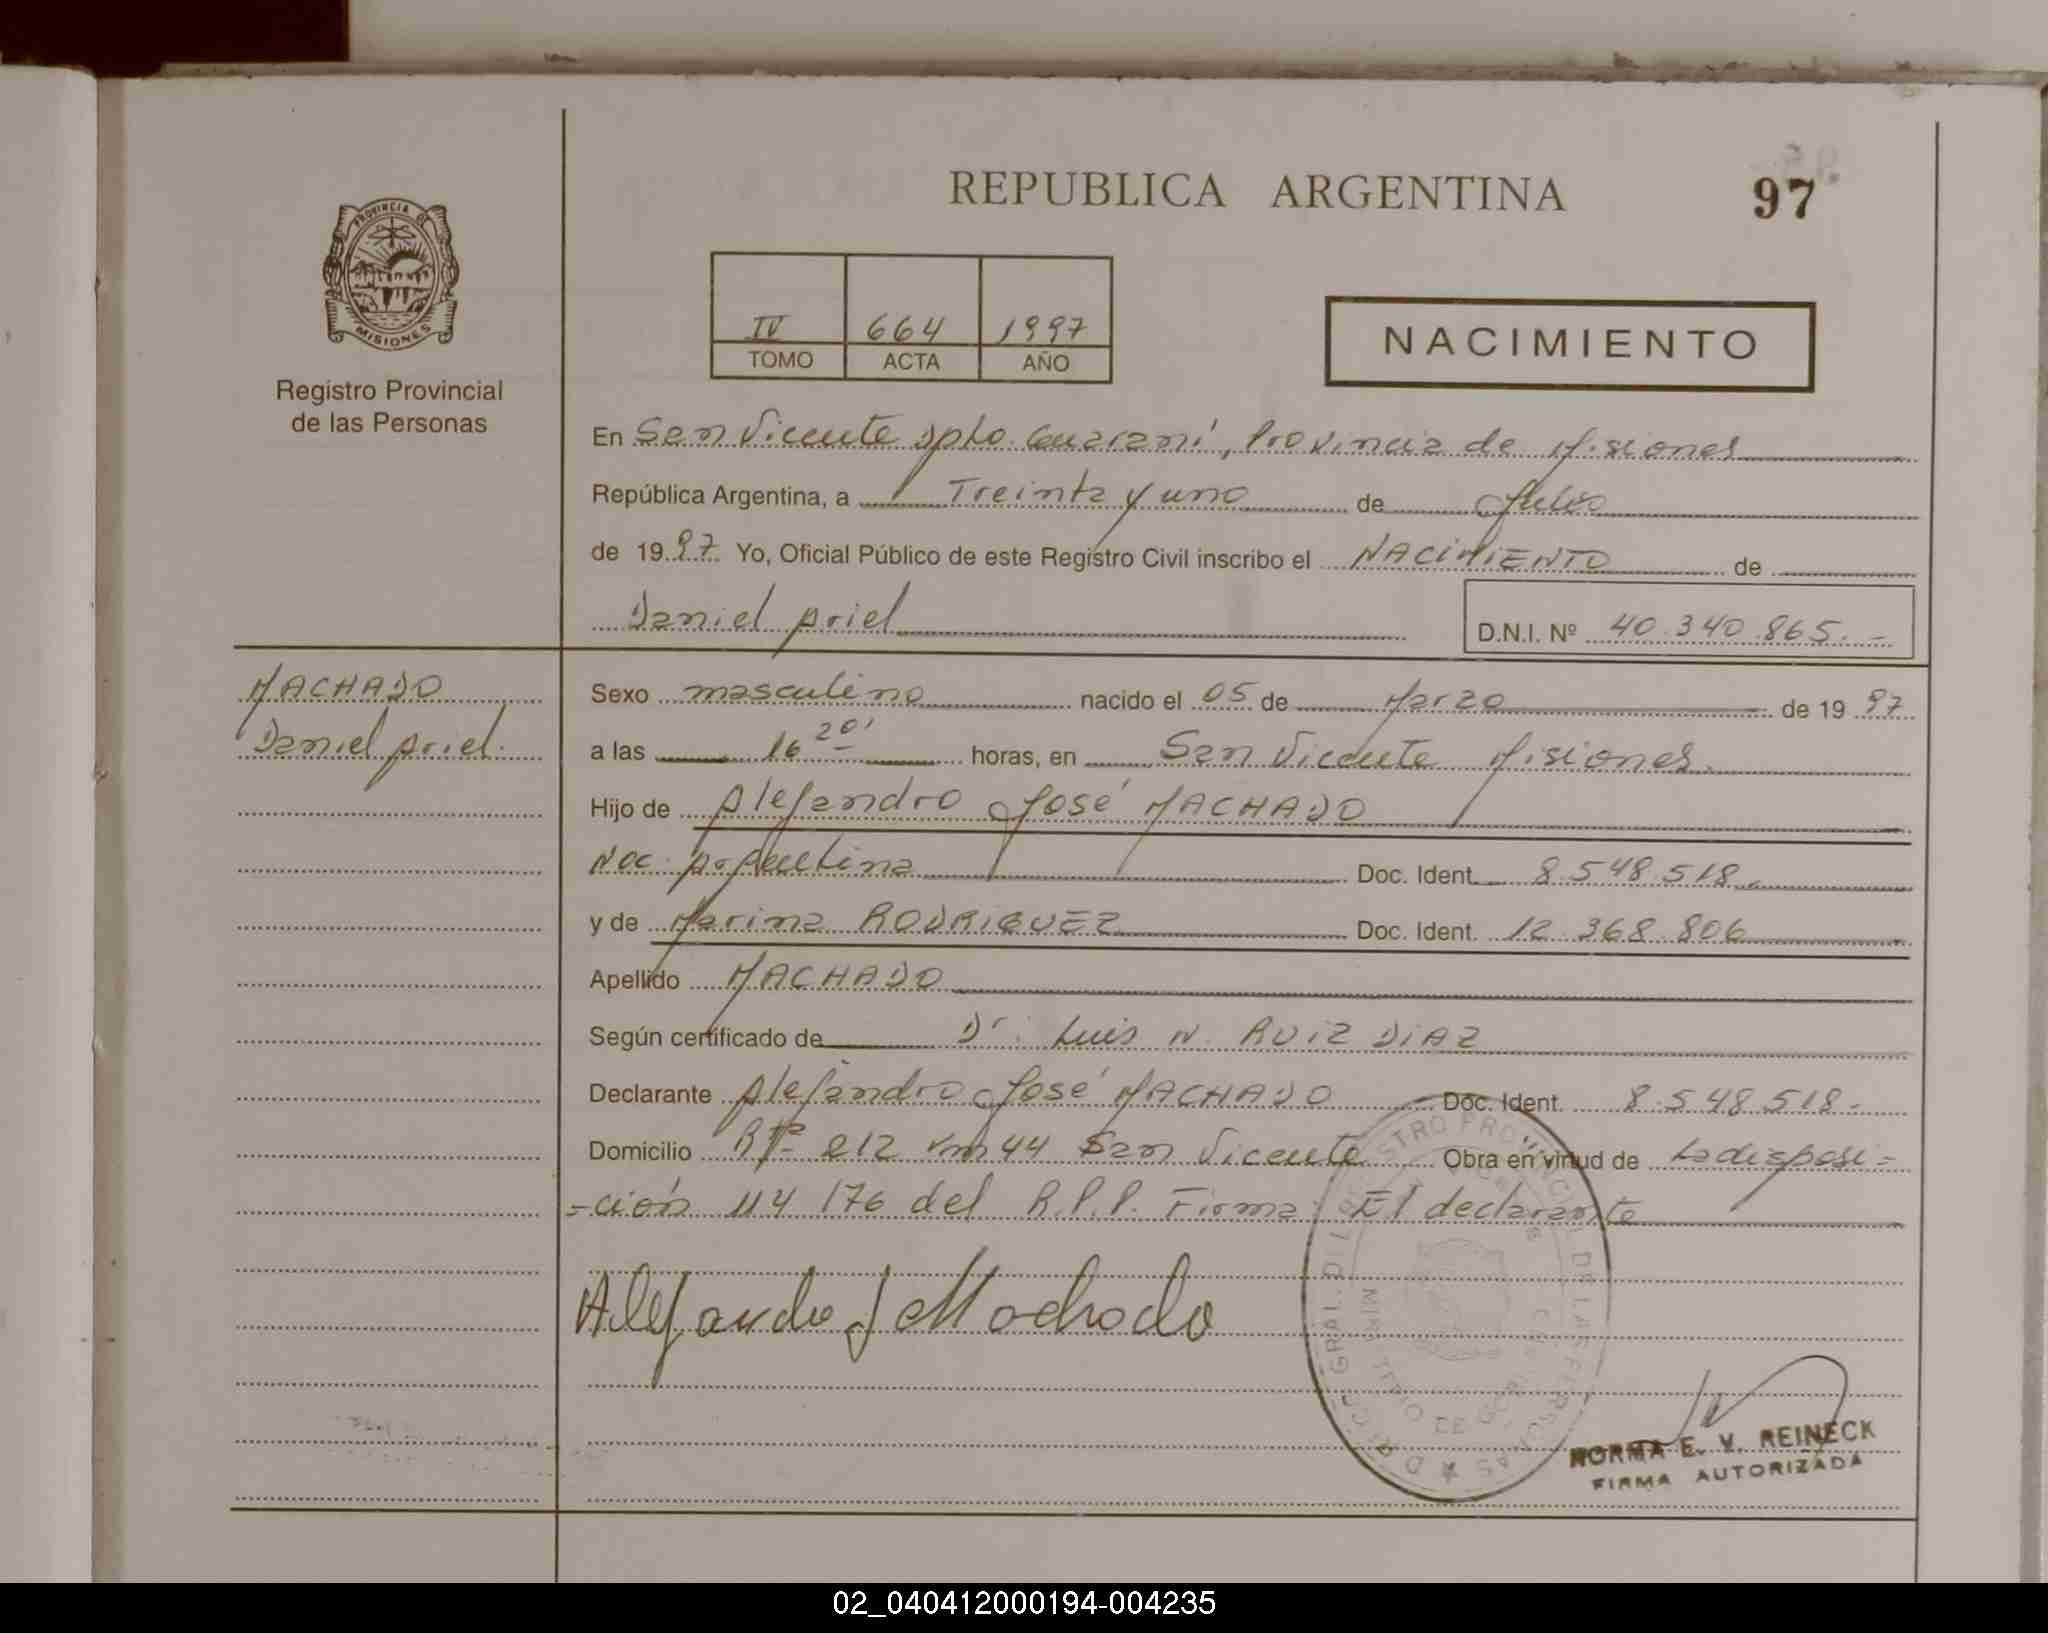 REPUBLICA ARGENTINA
97
PROVINCIA DE
MISIONES
Registro Provincial
de las Personas
IV 664 1997
TOMO ACTA AÑO
NACIMIENTO
En San Vicente Dpto. Guaraní, Provincia de Misiones
República Argentina, a Treinta y uno de Julio
de 1997 Yo, Oficial Público de este Registro Civil inscribo el NACIMIENTO de
Daniel Ariel
D.N.I. Nº 40.340.865.-
MACHADO
Daniel Ariel.
Sexo masculino nacido el 05 de Marzo de 1997
a las 16 20' horas, en San Vicente Misiones.
Hijo de Alejandro José MACHADO
Nac. Argentina Doc. Ident. 8.548.518.-
y de Marina RODRIGUEZ Doc. Ident. 12.368.806
Apellido MACHADO
Según certificado de Dr. Luis N. RUIZ DIAZ
Declarante Alejandro José MACHADO Doc. Ident. 8.548.518.-
Domicilio Rta 212 Km 44 San Vicente Obra en virtud de La disposi=
=ción 114/76 del R.P.P. Firma: El declarante
Alejandro J Machado
NORMA E. V. REINECK
FIRMA AUTORIZADA
02_040412000194-004235